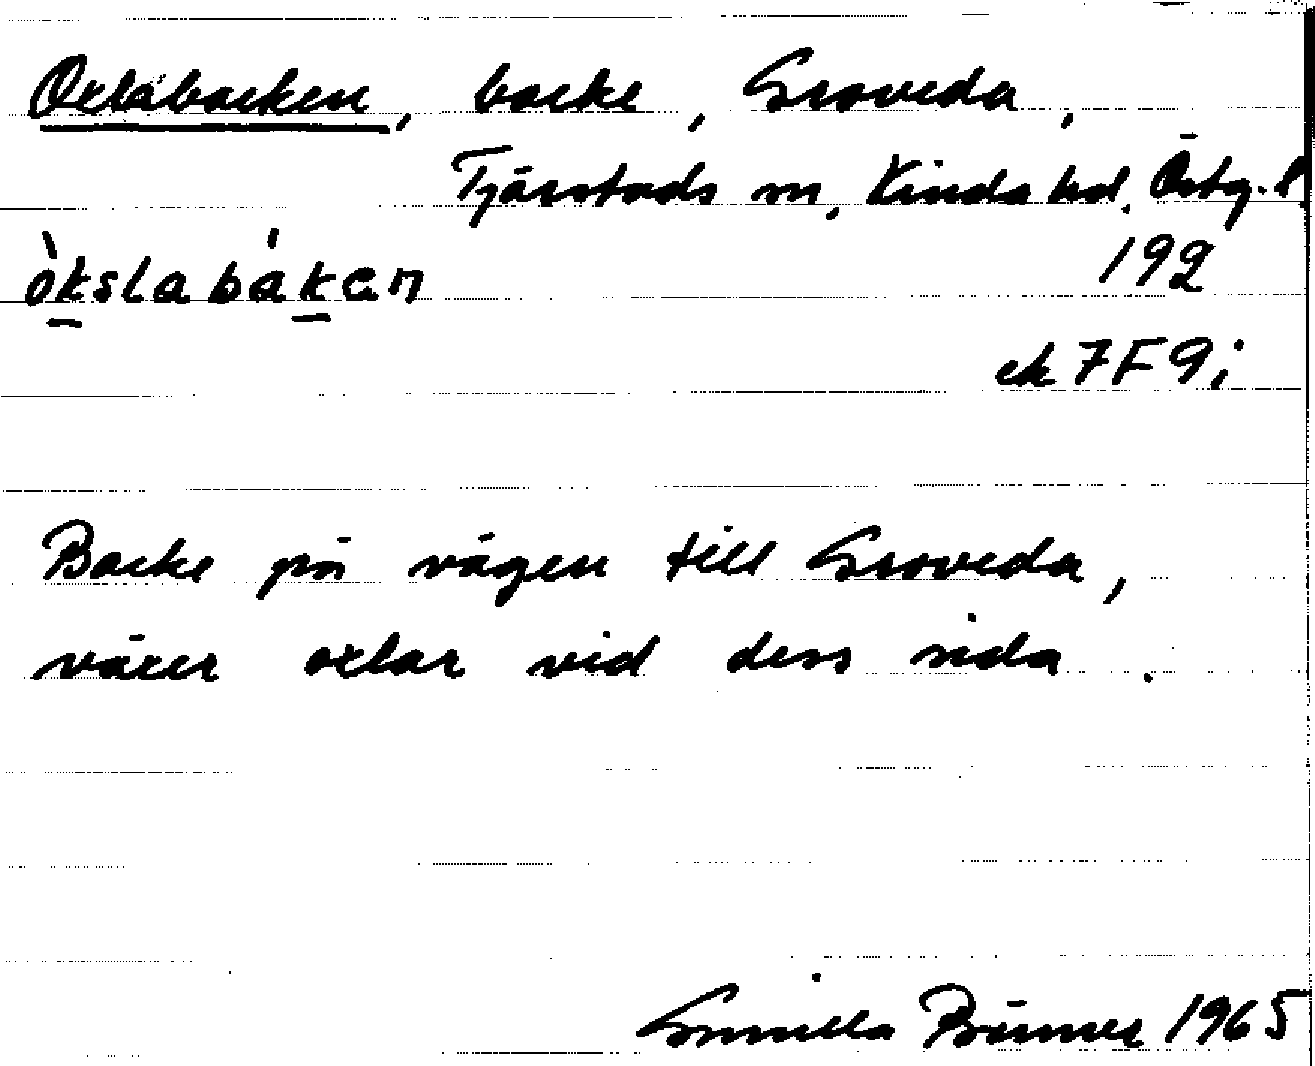 Oxlabacken, backe, Groveda,
Tjärstads sn, Kinda hd. Östg. l
òkslabáken 192
ek 7F 9i
Backe på vägen till Groveda,
växer oxlar vid dess sida.
Gunilla 1965